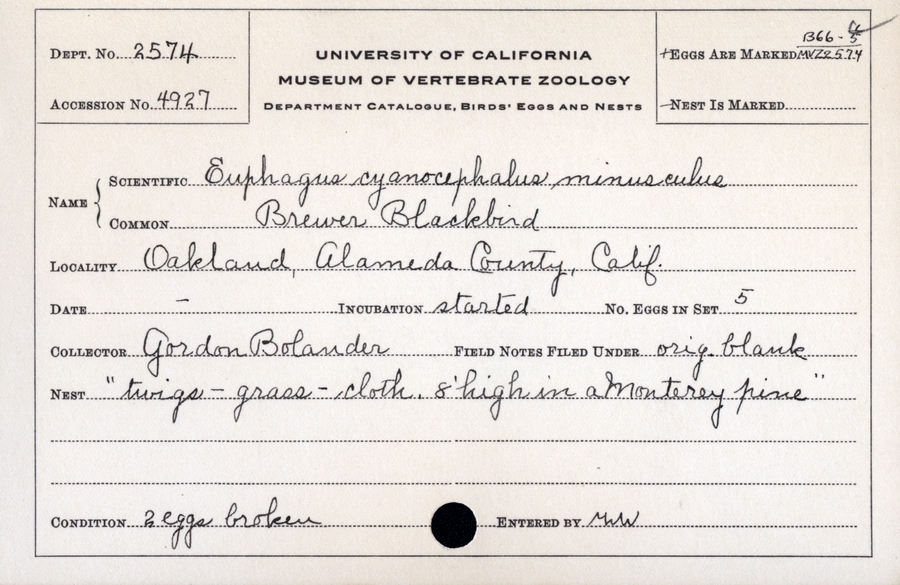 DEPT. No. 2574
ACCESSION No. 4927
UNIVERSITY OF CALIFORNIA
MUSEUM OF VERTEBRATE ZOOLOGY
DEPARTMENT CATALOGUE, BIRDS' EGGS AND NESTS
+EGGS ARE MARKED B66-5 MVZ2574
—NEST IS MARKED
NAME
SCIENTIFIC Euphagus cyanocephalus minusculus
COMMON Brewer Blackbird
LOCALITY Oakland, Alameda County, Calif.
DATE – INCUBATION started NO. EGGS IN SET 5
COLLECTOR Gordon Bolander FIELD NOTES FILED UNDER orig. blank
NEST "twigs – grass – cloth. 8' high in a Monterey pine"
CONDITION 2 eggs broken ENTERED BY